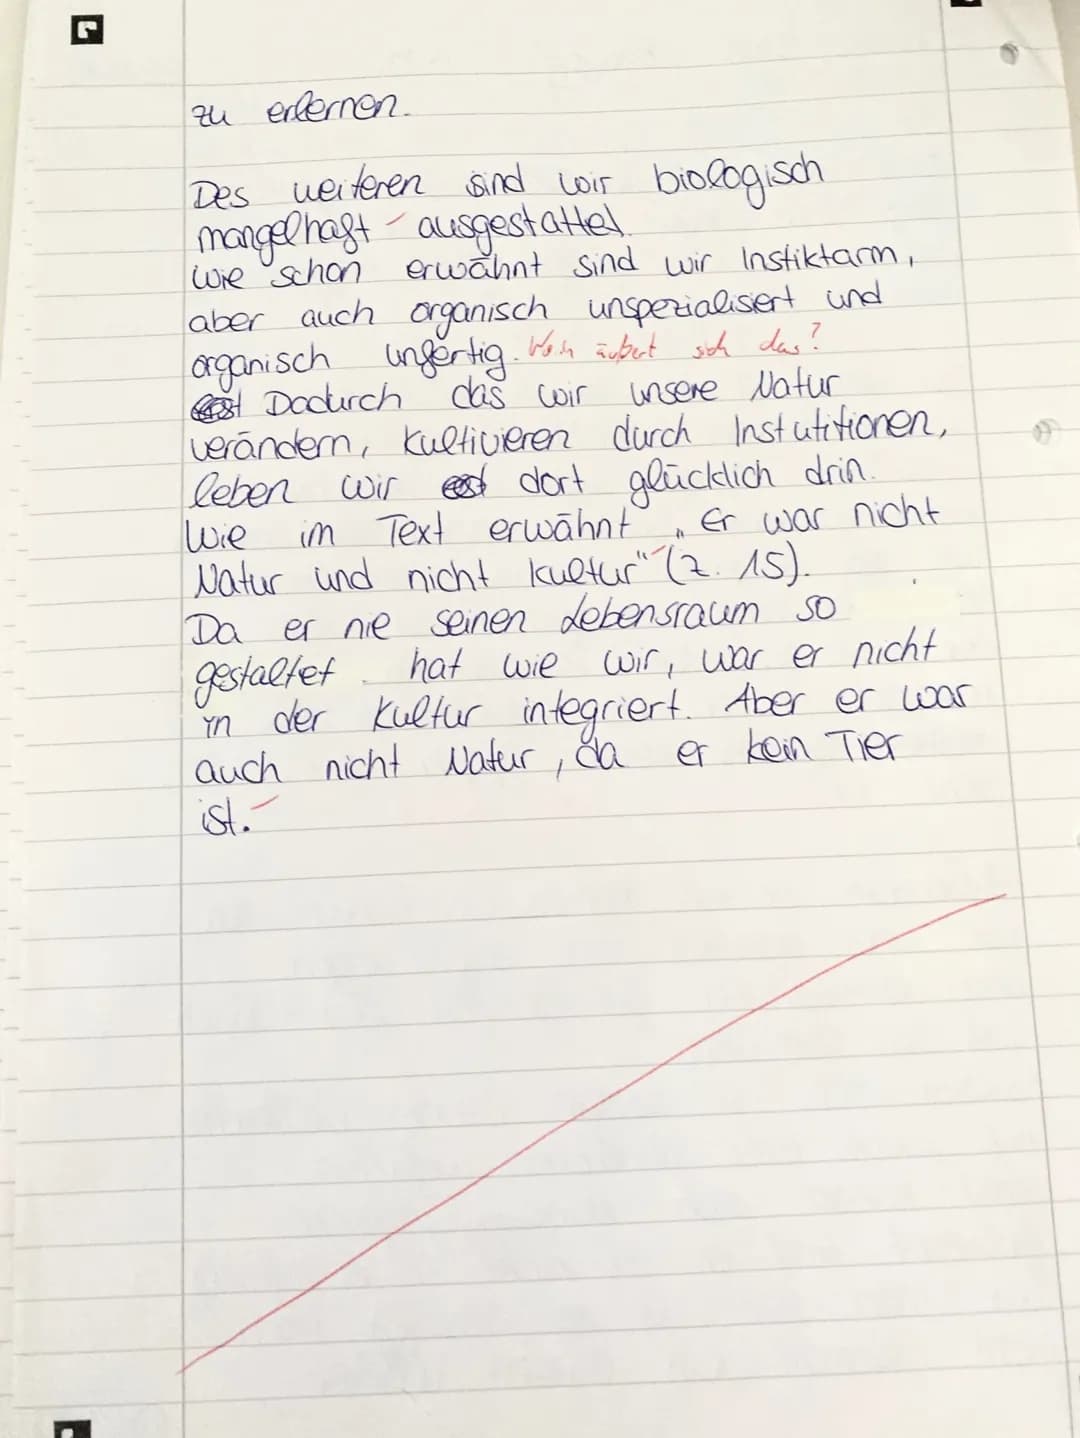 zu erlernen.
Des weiteren sind wir biologisch
mangelhaft ausgestattet.
Wie schon erwähnt sind wir Instiktarm,
aber auch organisch unspezialisiert und
organisch unfertig. Worin äußert sich das?
Dadurch das wir unsere Natur
verändern, kultivieren durch Instutitionen,
leben wir dort glücklich drin.
Wie im Text erwähnt „Er war nicht
Natur und nicht Kultur" (Z. 15).
Da er nie seinen Lebensraum so
gestaltet hat wie wir, war er nicht
in der Kultur integriert. Aber er war
auch nicht Natur, da er kein Tier
ist.